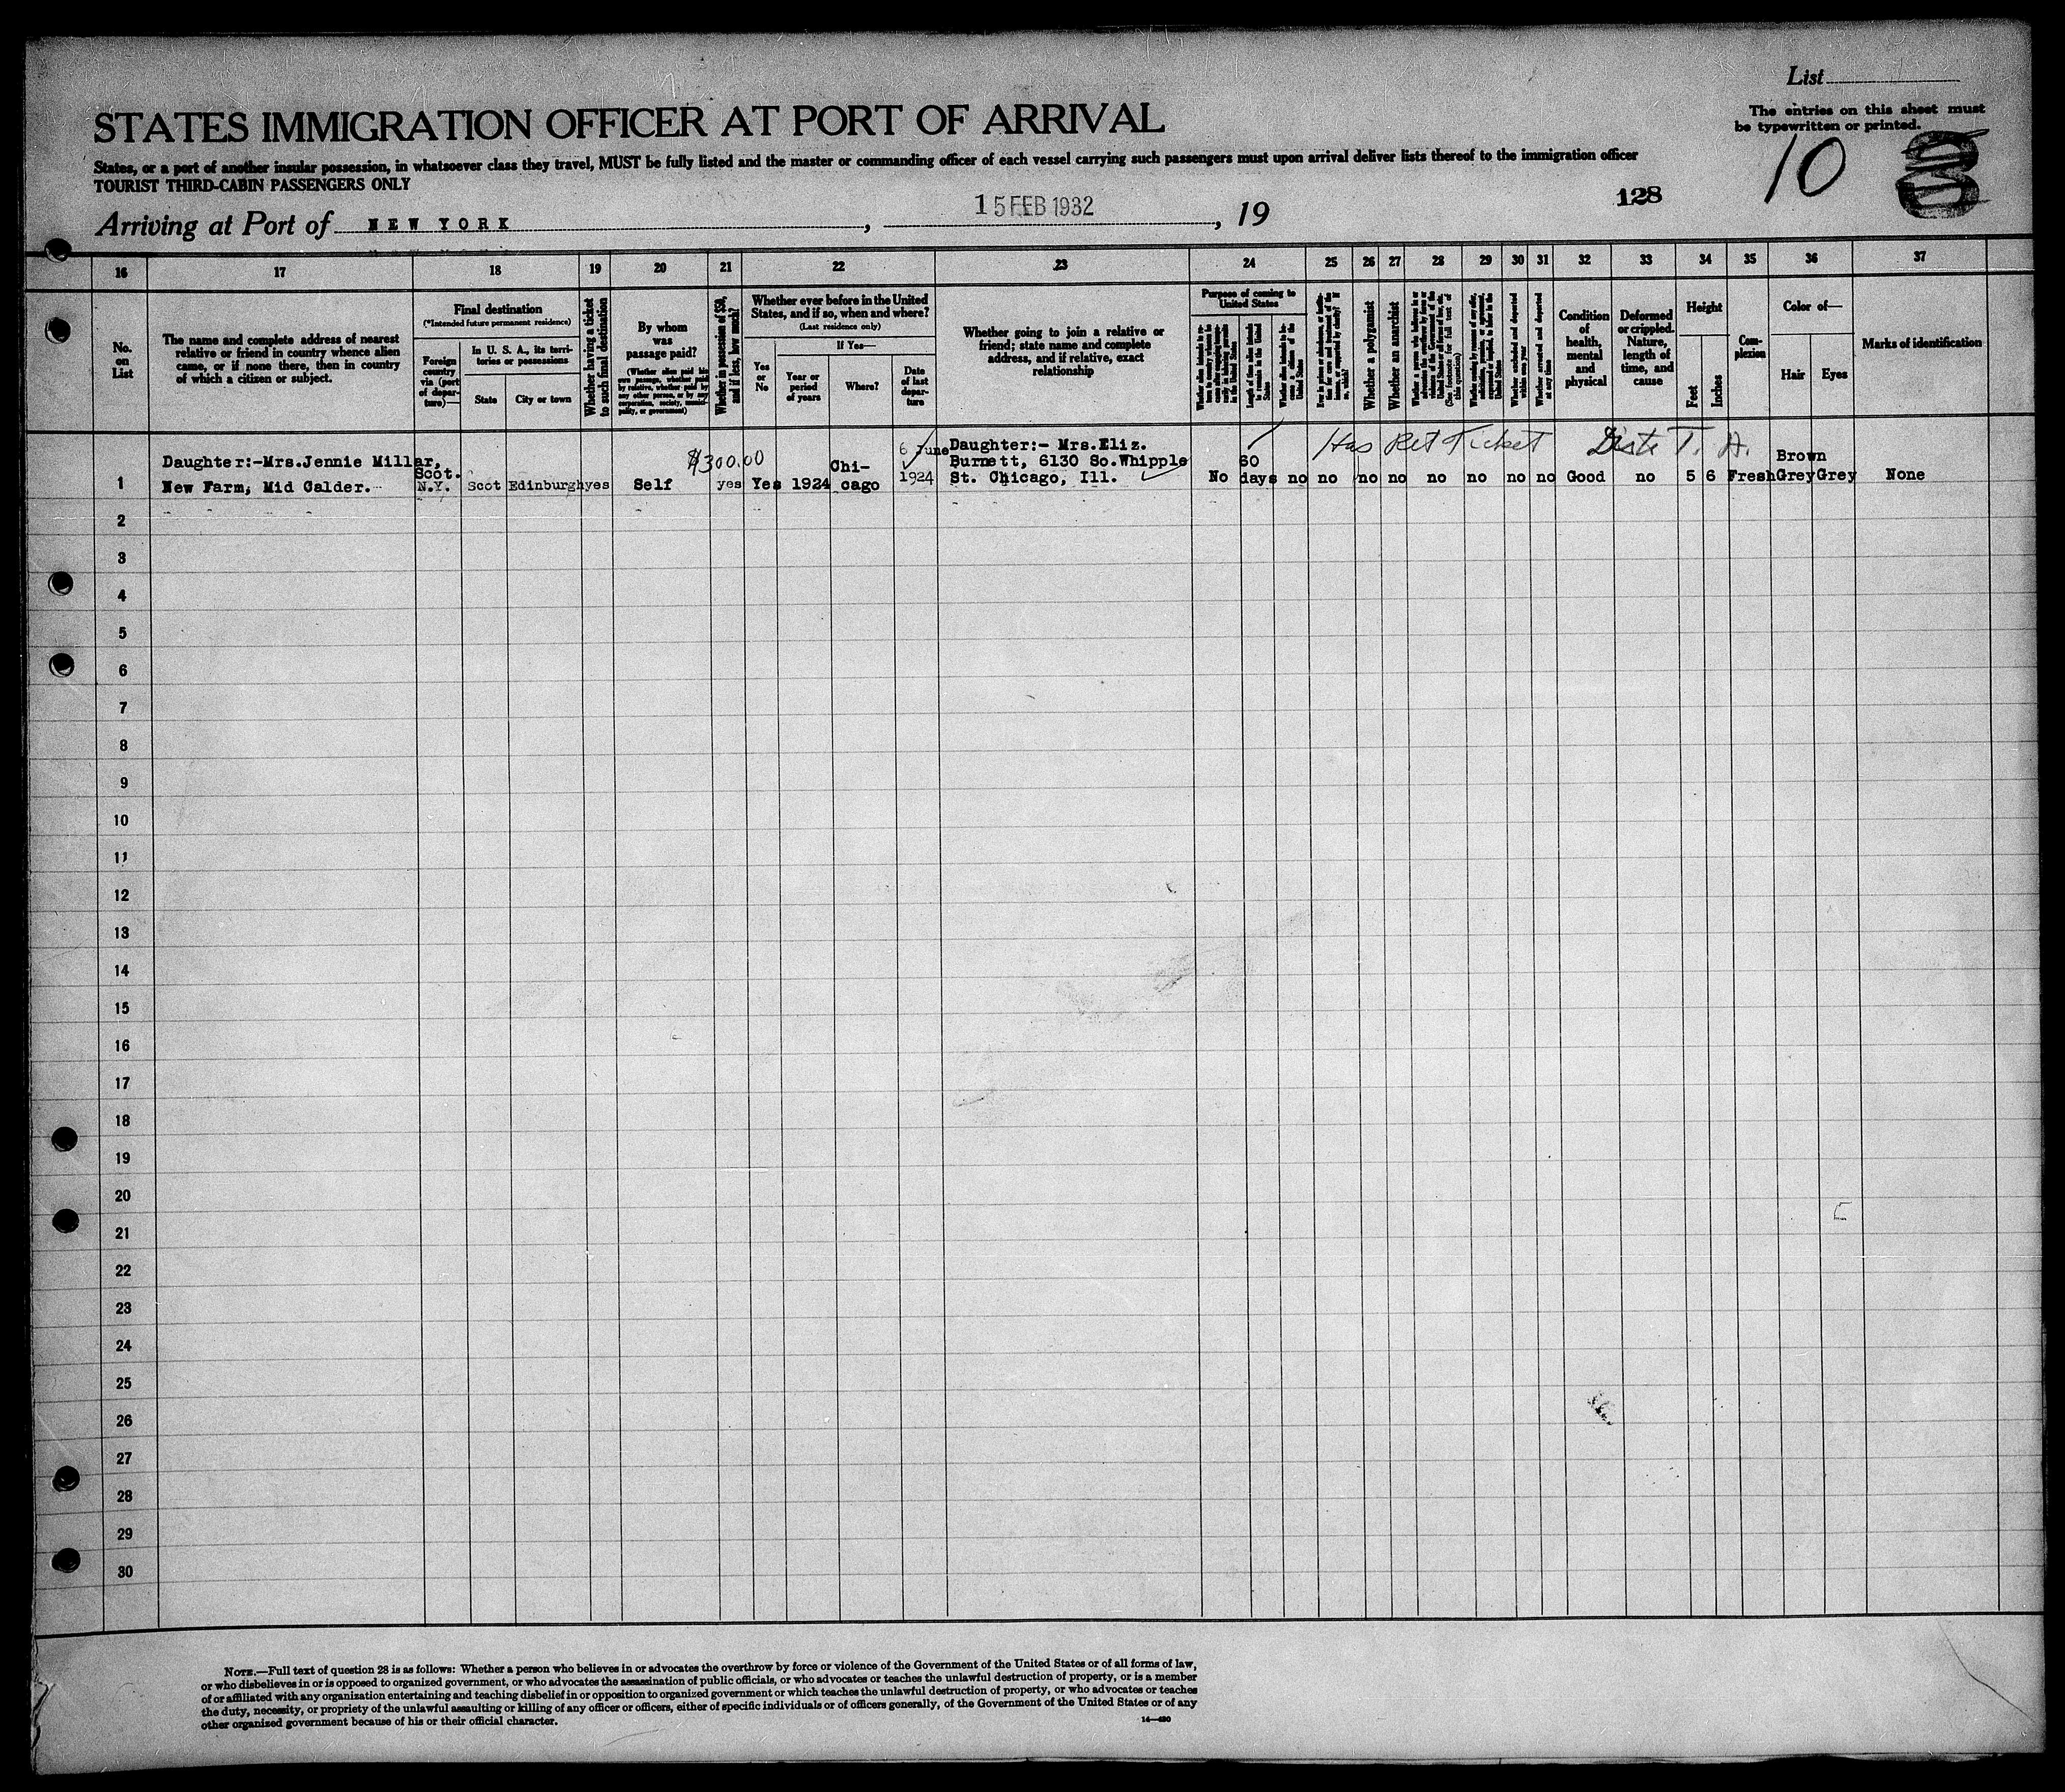 List
The entries on this sheet must
be typewritten or printed.
STATES IMMIGRATION OFFICER AT PORT OF ARRIVAL
10
States, or a port of another insular possession, in whatsoever class they travel, MUST be fully listed and the master or commanding officer of each vessel carrying such passengers must upon arrival deliver lists thereof to the immigration officer
TOURIST THIRD-CABIN PASSENGERS ONLY
128
Arriving at Port of NEW YORK, 15 FEB 1932, 19
16 17 18 19 20 21 22 23 24 25 26 27 28 29 30 31 32 33 34 35 36 37
No.
on
List
The name and complete address of nearest
relative or friend in country whence alien
came, or if none there, then in country
of which a citizen or subject.
Final destination
(*Intended future permanent residence)
Foreign
country
via (port
of depar-
ture)—
In U. S. A., its terri-
tories or possessions
State
City or town
Whether having a ticket
to such final destination
By whom
was
passage paid?
(Whether alien paid his
own passage, whether paid
by relative, whether paid by
any other person, or by any
corporation, society, munici-
pality, or government)
Whether in possession of $50,
and if less, how much?
Whether ever before in the United
States, and if so, when and where?
(Last residence only)
Yes
or
No
If Yes—
Year or
period
of years
Where?
Date
of last
depar-
ture
Whether going to join a relative or
friend; state name and complete
address, and if relative, exact
relationship
Purpose of coming to
United States
Whether a polygamist
Whether an anarchist
(See footnote for full text of
this question)
Whether arrested and deported
at any time
Condition
of
health,
mental
and
physical
Deformed
or crippled.
Nature,
length of
time, and
cause
Height
Feet
Inches
Com-
plexion
Color of—
Hair
Eyes
Marks of identification
1
Daughter:-Mrs.Jennie Millar,
New Farm, Mid Calder.
Scot.
N.Y.
Scot
Edinburgh
yes
Self
$300.00
yes
Yes
1924
Chi-
cago
6 June
1924
Daughter:- Mrs.Eliz.
Burnett, 6130 So.Whipple
St. Chicago, Ill.
No
60
days
no
Has Ret Ticket
no no no no no no no
Good
no
5 6
Fresh
Brown
Grey
Grey
None
2
3
4
5
6
7
8
9
10
11
12
13
14
15
16
17
18
19
20
21
22
23
24
25
26
27
28
29
30
NOTE.—Full text of question 28 is as follows: Whether a person who believes in or advocates the overthrow by force or violence of the Government of the United States or of all forms of law,
or who disbelieves in or is opposed to organized government, or who advocates the assassination of public officials, or who advocates or teaches the unlawful destruction of property, or is a member
of or affiliated with any organization entertaining and teaching disbelief in or opposition to organized government or which teaches the unlawful destruction of property, or who advocates or teaches
the duty, necessity, or propriety of the unlawful assaulting or killing of any officer or officers, either of specific individuals or of officers generally, of the Government of the United States or of any
other organized government because of his or their official character.
14—430